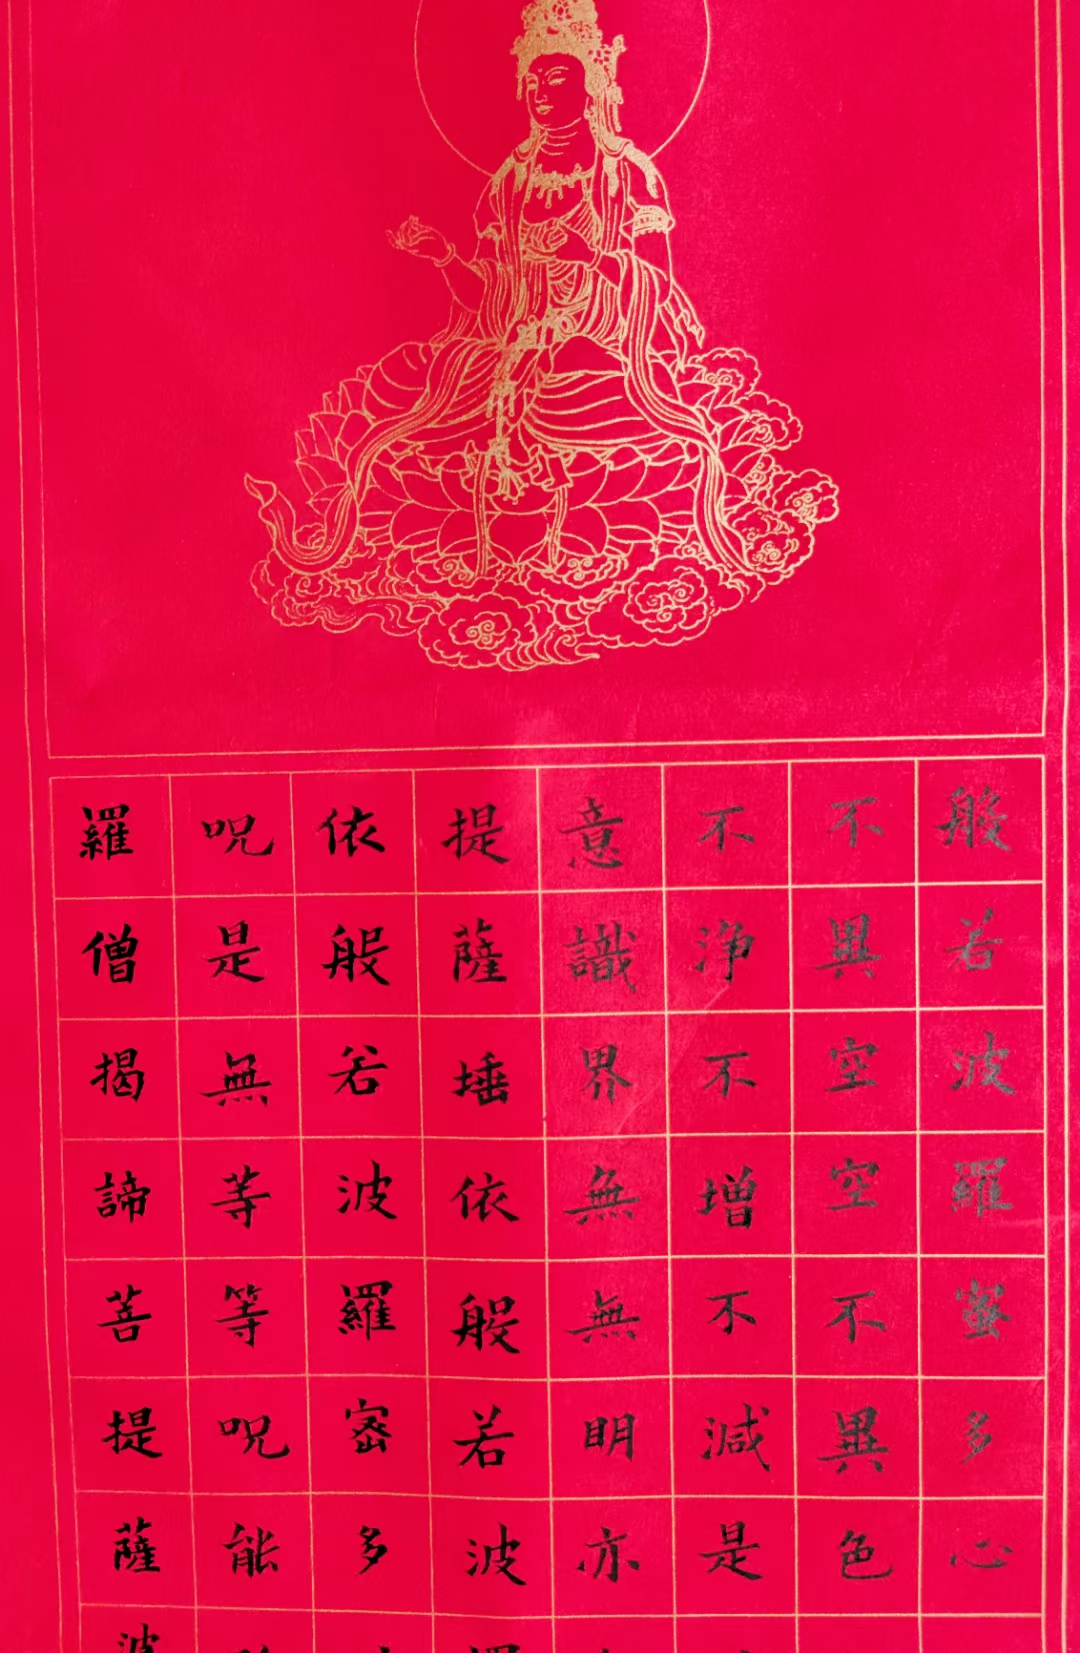 般若波羅蜜多心
不異空空不異色
不浄不増不減是
意識界無無明亦
提薩埵依般若波
依般若波羅密多
呪是無等等呪能
羅僧揭諦菩提薩波